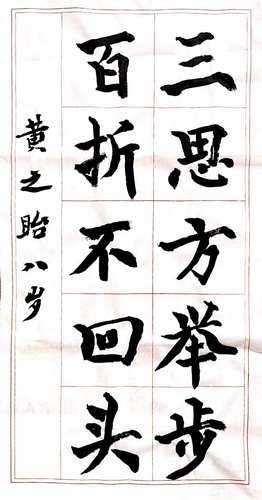 三思方举步
百折不回头
黄之眙八岁